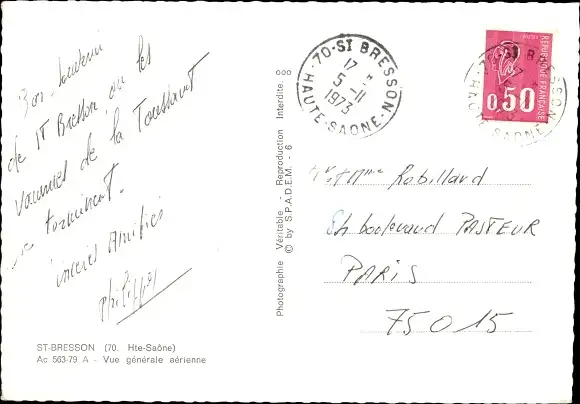 Bon souvenir
de St Bresson où les
vacances de la Toussaint
se terminent.
sincères Amitiés
Philippe
ST-BRESSON (70. Hte-Saône)
Ac 563-79 A - Vue générale aérienne
Photographie Véritable - Reproduction Interdite.
© by S.P.A.D.E.M. - 6
70-ST BRESSON
17 H
5-11
1973
HAUTE-SAONE
REPUBLIQUE FRANÇAISE
0,50
70-ST BRESSON
HAUTE-SAONE
Mr et Mme Robillard
boulevard PASTEUR
PARIS
75015